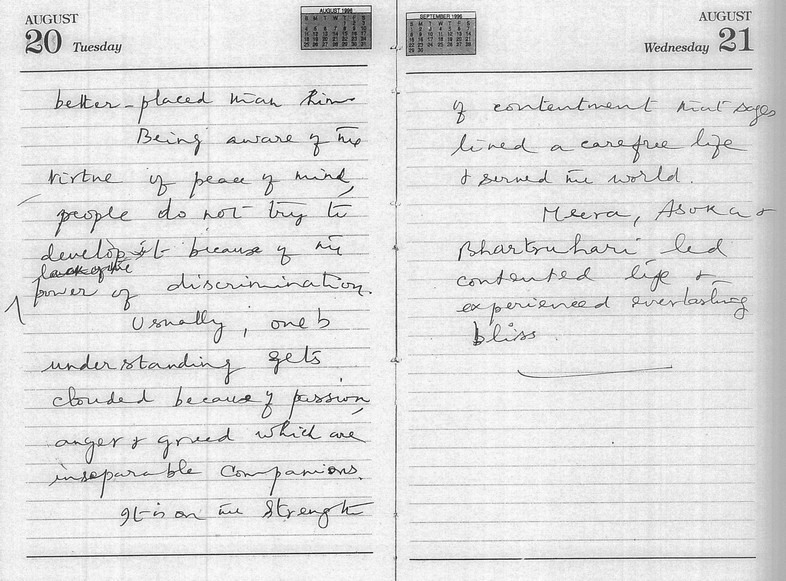 AUGUST
20 Tuesday
AUGUST 1996
better-placed than him
Being aware of the
virtue of peace of mind,
people do not try to
develop it because of the
lack of the
power of discrimination.
Usually, one's
understanding gets
clouded because of passion,
anger & greed which are
inseparable companions.
It is on the strength
SEPTEMBER 1996
AUGUST
Wednesday 21
of contentment that sages
lived a carefree life
& served the world.
Meera, Asoka &
Bhartruhari led
contented life &
experienced everlasting
bliss.